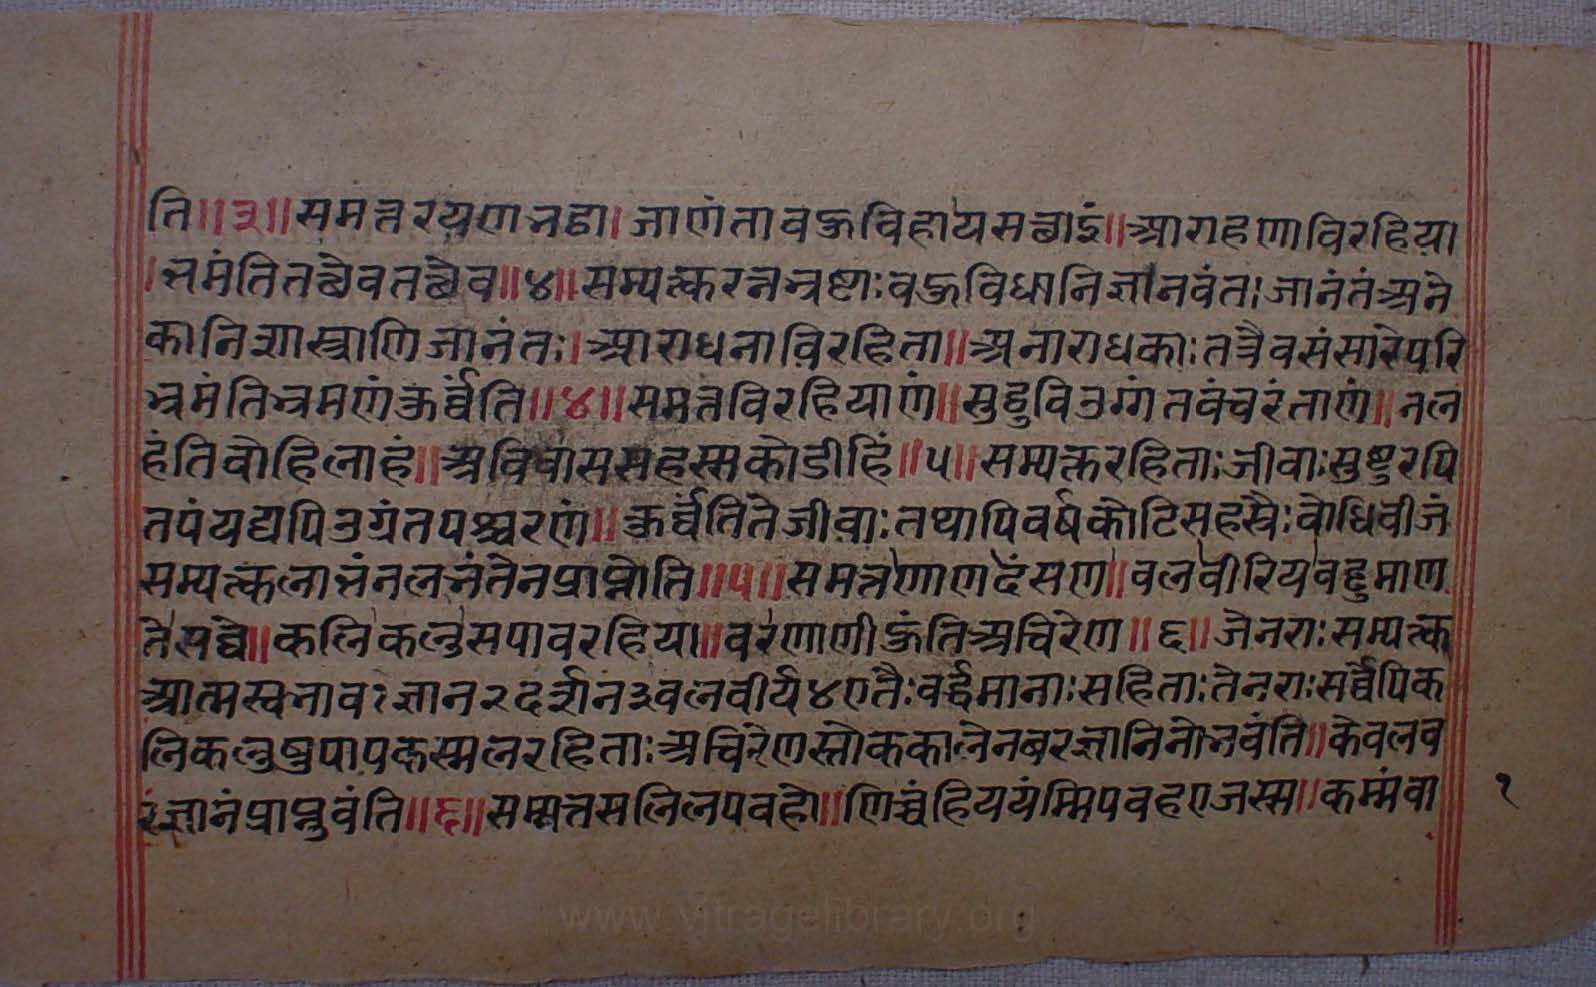 ति॥३॥समत्तरयणभट्ठा।जाणंतावहुविहायसत्थाइं॥आराहणाविरहिया
।भमंतितत्थेवतत्थेव॥४॥सम्यक्तरत्नभ्रष्टाःवहुविधानिज्ञानवंतःजानंतंअने
कानिशास्त्राणिजानंतः।आराधनाविरहिता॥अनाराधकाःतत्रैवसंसारेपरि
भ्रमंतिभ्रमणंकुर्व्वंति॥४॥समत्तविरहियाणं॥सुट्ठुविउग्गंतवंचरंताणं॥नल
हंतिवोहिलाहं॥अविवाससहस्सकोडीहिं॥५॥सम्यक्तरहिताःजीवाःसुष्टुरपि
तपंयद्यपिउग्रंतपश्चरणं॥कुर्व्वंतितेजीवाःतथापिवर्षकोटिसहस्रैःवोधिवीजं
सम्यक्तलाभंनलभंतेनप्राप्नोति॥५॥समत्तणाणदंसण॥वलवीरियवहुमाण
तेसव्वे॥कलिकलुसपावरहिया॥वरणाणीहुंतिअचिरेण॥६॥जेनराःसम्यक्त
आत्मस्वभावःज्ञान२दर्शन३वलवीर्य४एतैःवर्द्धमानाःसहिताःतेनराःसर्व्वेपिक
लिकलुषुपापकस्मलरहिताःअचिरेणस्तोककालेनबरज्ञानिनोभवंति॥केवलव
रंज्ञानंप्राप्नुवंति॥६॥सम्मत्तसलिलपवहो॥णिच्चंहिययंम्मिपवहएजस्स॥कम्मंवा
१
www.vitragelibrary.org